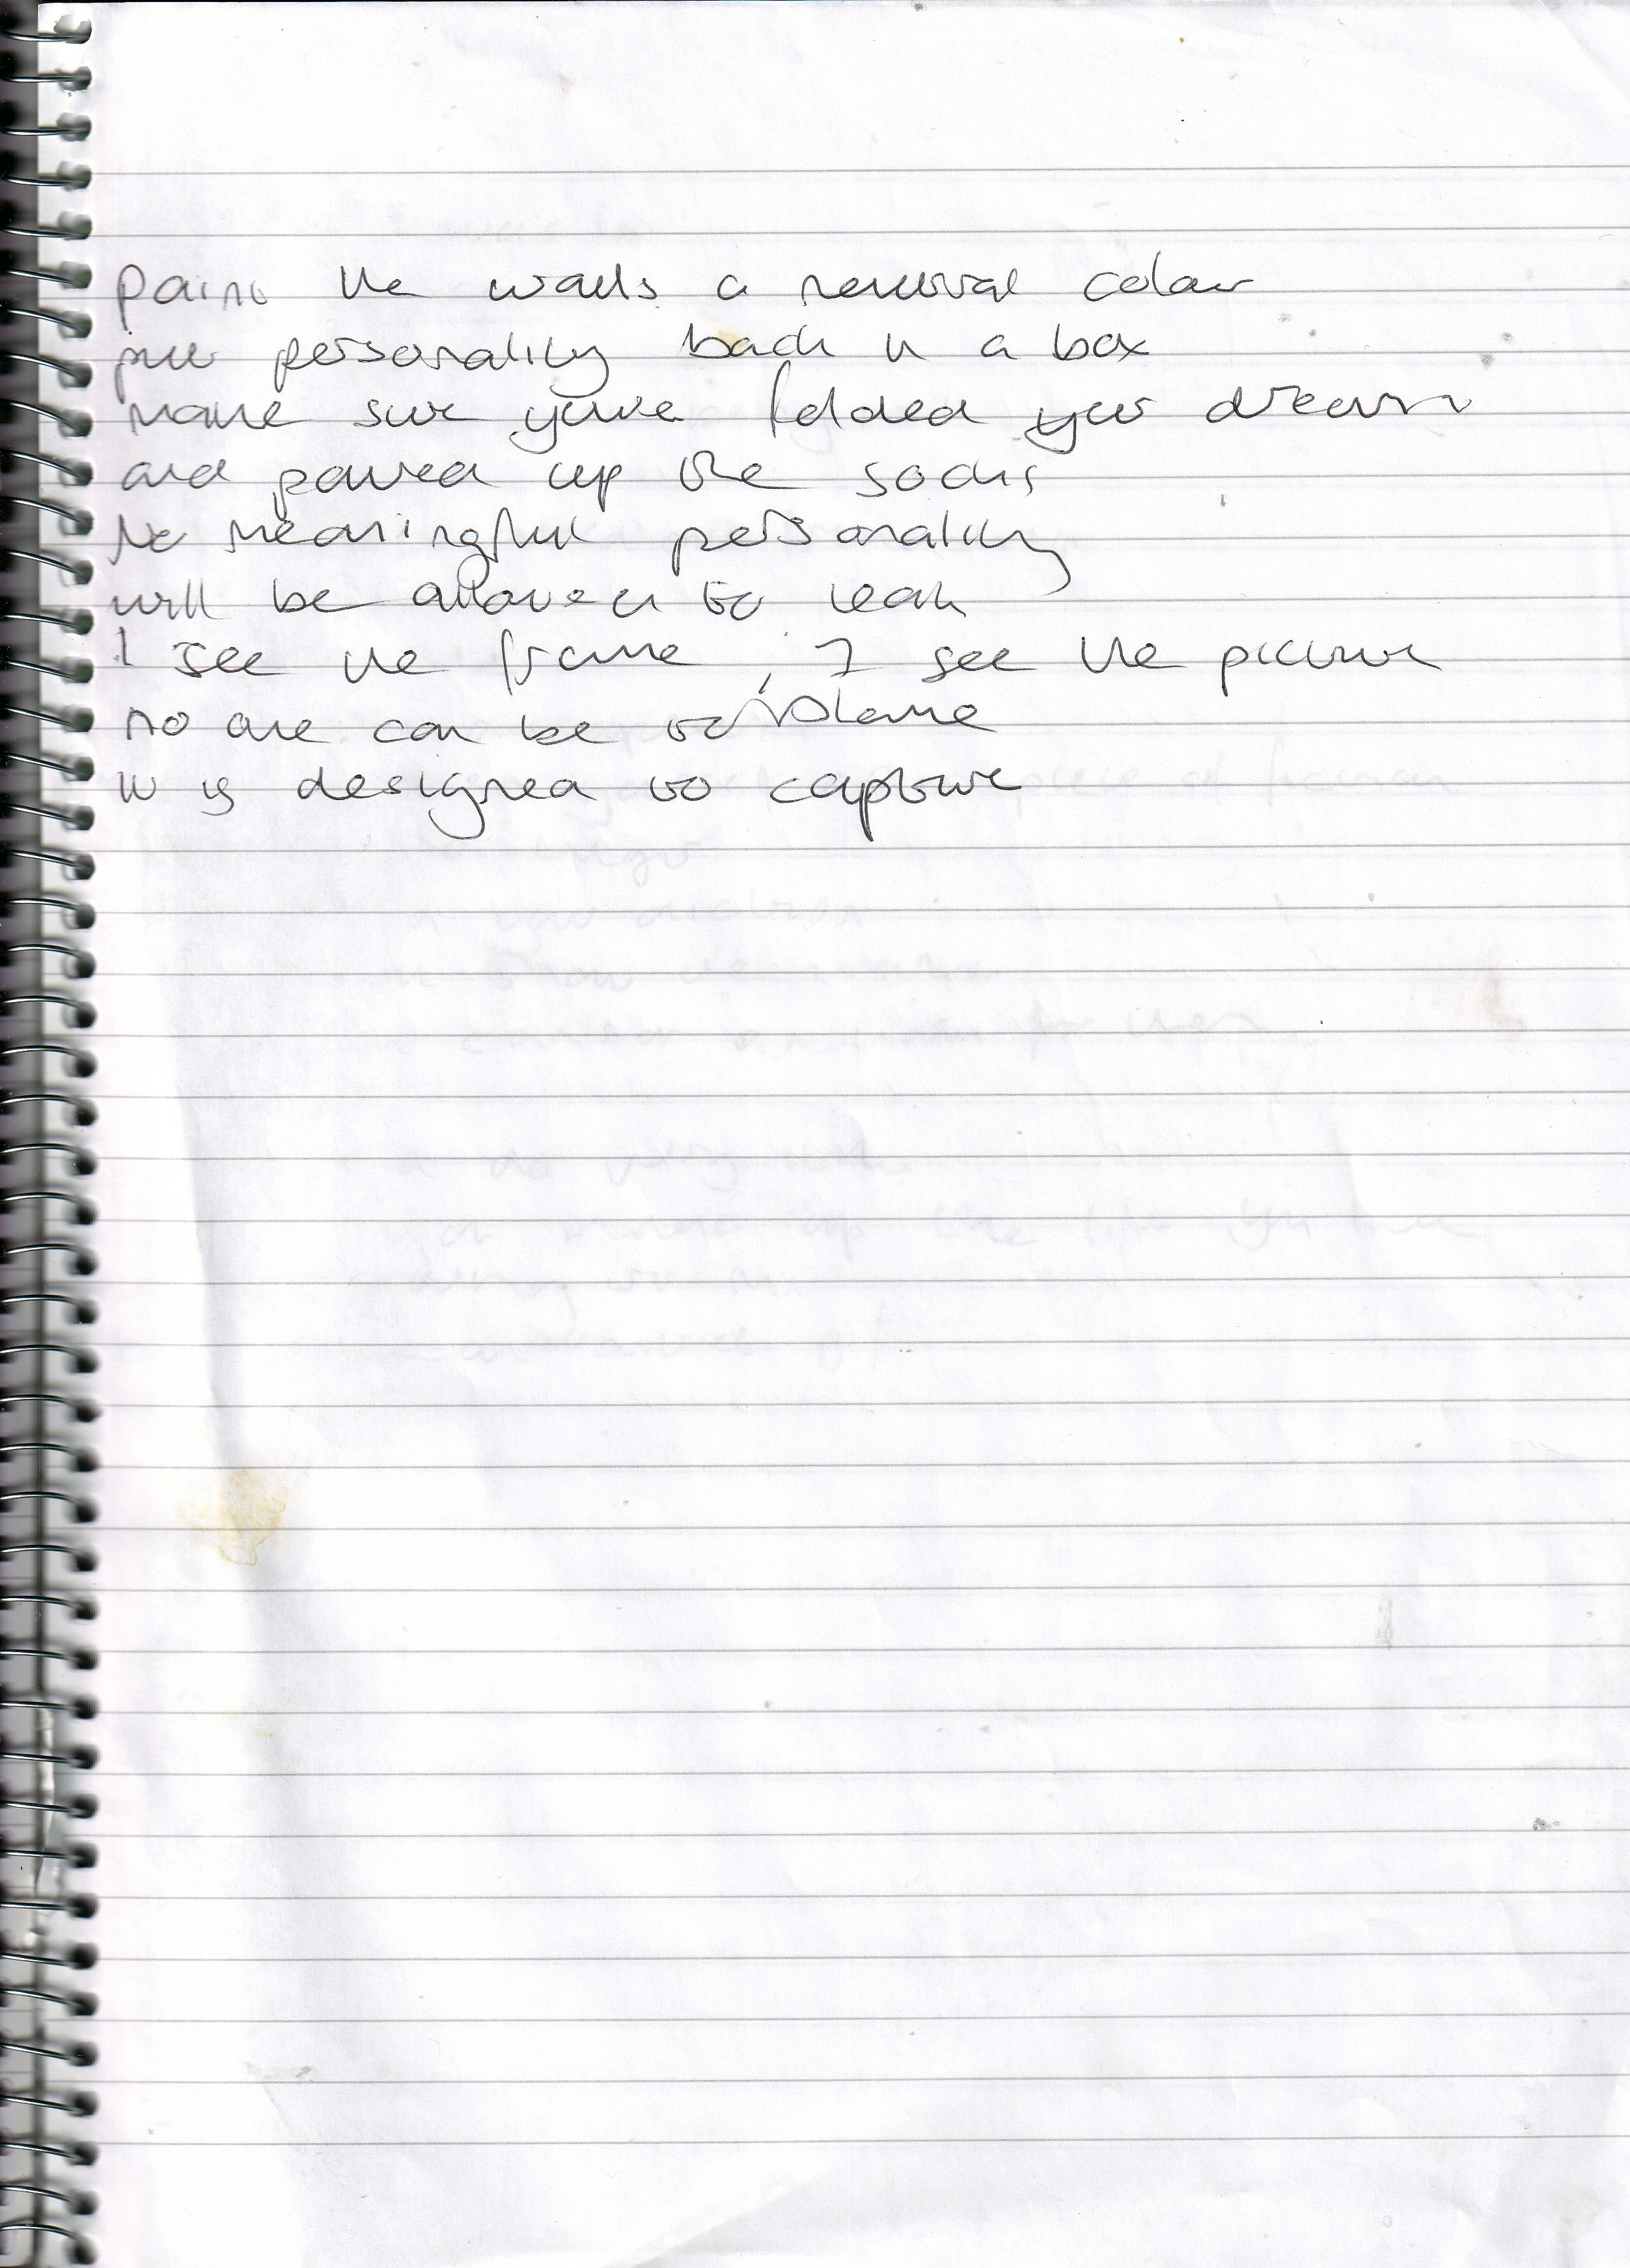 paint the walls a neutral colour
put personality back in a box
make sure you've folded your dreams
and paired up the socks
No meaningful personality
will be allowed to leak
I see the frame, I see the picture
no one can be to blame
it is designed to capture